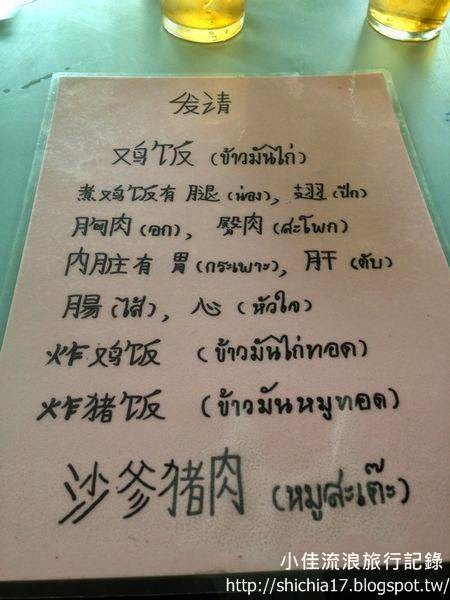 发请
鸡饭 (ข้าวมันไก่)
煮鸡饭有 腿 (น่อง), 翅 (ปีก)
胸肉 (อก), 臀肉 (สะโพก)
内脏有 胃 (กระเพาะ), 肝 (ตับ)
腸 (ไส้), 心 (หัวใจ)
炸鸡饭 (ข้าวมันไก่ทอด)
炸猪饭 (ข้าวมันหมูทอด)
沙爹猪肉 (หมูสะเต๊ะ)
小佳流浪旅行記錄
http://shichia17.blogspot.tw/